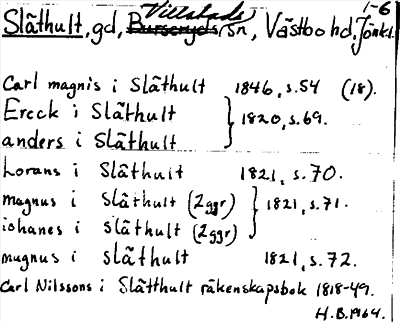 1-6
Villstads
Slãthult, gd, Burseryds sn, Västbo hd. Jönk.l.
Carl magnis i Slãthult 1846, s.54 (18).
Ereck i Slãthult
anders i Slãthult } 1820, s.69.
Lorans i Slãthult 1821, s.70.
magnus i Slãthult (2ggr)
iohanes i slãthult (2ggr) } 1821, s.71.
mugnus i slãthult 1821, s.72.
Carl Nilssons i Slãtthult räkenskapsbok 1818-49.
H.B.1964.